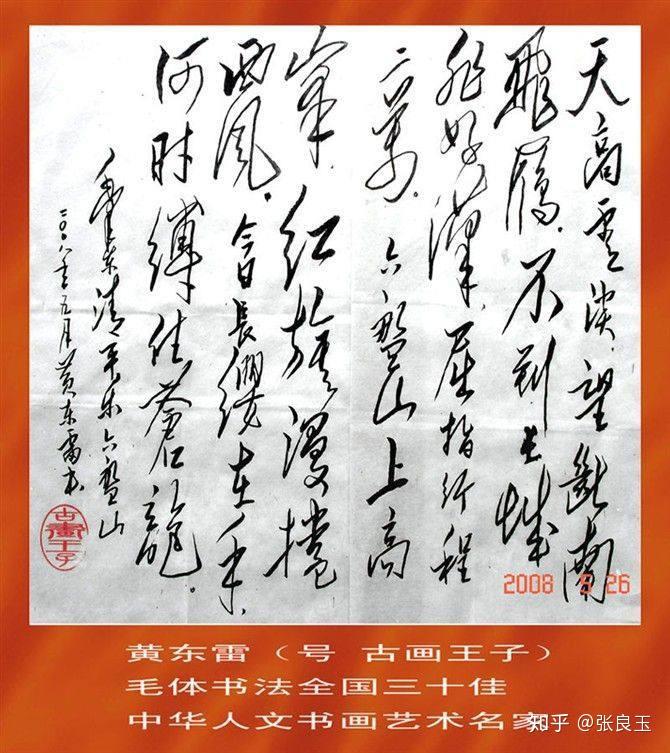 天高雲淡望斷南
飛雁不到长城
非好漢屈指行程
二萬六盤山上高
峯红旗漫捲
西風。今日長纓在手
何时縛住蒼龍
毛泽东清平乐六盤山
二〇〇八年五月黄东雷书
古畫王子
2008 5 26
黄东雷（号 古画王子）
毛体书法全国三十佳
中华人文书画艺术名家
知乎 @张良玉